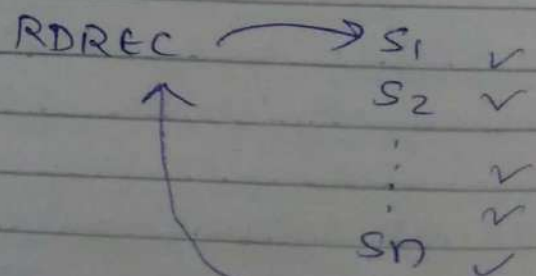 RDREC → S1 ✓
S2 ✓
⋮ ✓
✓
Sn ✓